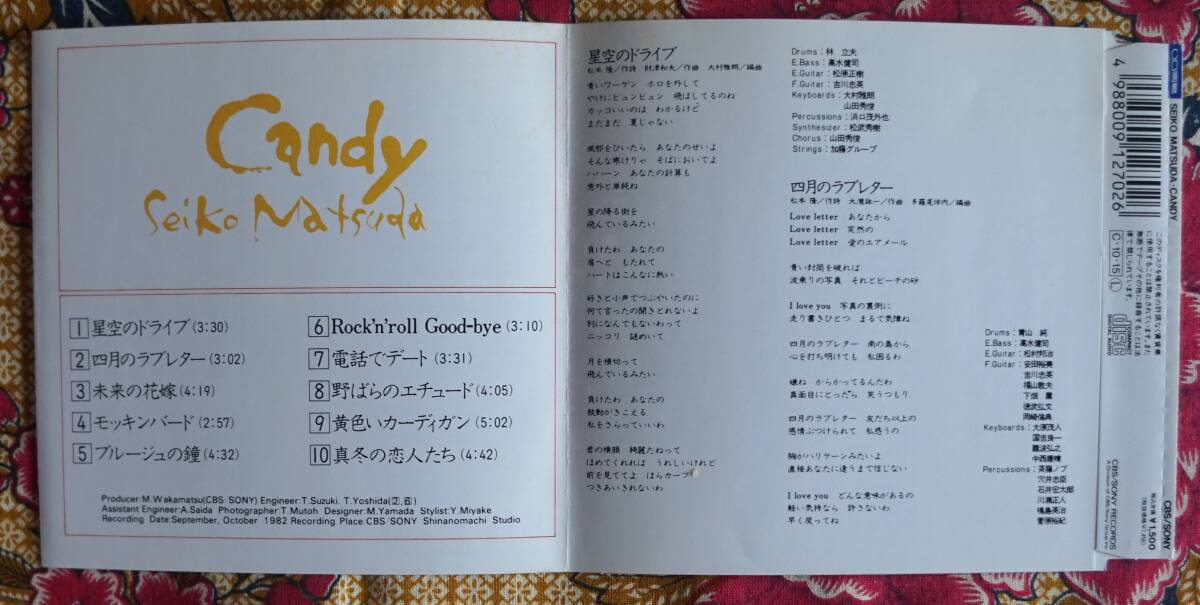 Candy
Seiko Matsuda
1 星空のドライブ(3:30)
2 四月のラブレター(3:02)
3 未来の花嫁(4:19)
4 モッキンバード(2:57)
5 ブルージュの鐘(4:32)
6 Rock'n'roll Good-bye(3:10)
7 電話でデート(3:31)
8 野ばらのエチュード(4:05)
9 黄色いカーディガン(5:02)
10 真冬の恋人たち(4:42)
Producer:M.Wakamatsu(CBS SONY) Engineer:T.Suzuki, T.Yoshida(②,⑥)
Assistant Engineer:A.Saida Photographer:T.Mutoh Designer:M.Yamada Stylist:Y.Miyake
Recording Date:September, October 1982 Recording Place:CBS SONY Shinanomachi Studio
星空のドライブ
松本 隆/作詩 財津和夫/作曲 大村雅朗/編曲
青いワーゲン ホロを外して
やけにビュンビュン 飛ばしてるのね
カッコいいのは わかるけど
まだまだ 夏じゃない
風邪をひいたら あなたのせいよ
そんな寒けりゃ そばにおいでよ
ハハーン あなたの計算も
意外と単純ね
星の降る街を
飛んでいるみたい
負けたわ あなたの
肩へと もたれて
ハートはこんなに熱い
好きと小声でつぶやいたのに
何て言ったの聞きとれないよ
別になんてもないわって
ニッコリ 謎めいて
月を横切って
飛んでいるみたい
負けたわ あなたの
鼓動がきこえる
私をさらっていいわ
君の横顔 綺麗だねって
ほめてくれれば うれしいけれど
前を見ててよ ほらカーブ
つきあいきれないわ
Drums:林 立夫
E.Bass:高水健司
E.Guitar:松原正樹
F.Guitar:吉川忠英
Keyboards:大村雅朗
山田秀俊
Percussions:浜口茂外也
Synthesizer:松武秀樹
Chorus:山田秀俊
Strings:加藤グループ
四月のラブレター
松本 隆/作詩 大瀧詠一/作曲 多羅尾伴内/編曲
Love letter あなたから
Love letter 突然の
Love letter 愛のエアメール
青い封筒を破れば
波乗りの写真 それとビーチの砂
I love you 写真の裏側に
走り書きひとつ まるで気障ね
四月のラブレター 南の島から
心を打ち明けても 私困るわ
嫌ね からかってるんだわ
真面目にとったら 笑うつもり
四月のラブレター 友だち以上の
感情ぶつけられて 私惑うの
胸がハリケーンみたいよ
直接あなたに逢うまで信じない
I love you どんな意味があるの
軽い気持なら 許さないわ
早く戻ってね
Drums:青山 純
E.Bass:高水健司
E.Guitar:松村邦治
F.Guitar:安田裕美
吉川忠英
福山敦夫
下畑 薫
徳武弘文
岡崎倫典
Keyboards:大原茂人
国吉良一
難波弘之
中西康晴
Percussions:斉藤ノブ
穴井忠臣
石井宏太郎
川瀬正人
鳴島英治
菅原裕紀
SEIKO MATSUDA・CANDY
4 988009 127026
このディスクを権利者の許諾なく賃貸業
に使用することは禁止されています。また
無断でテープその他に録音することは法
律で禁じられています。
C・10・15 Ⓛ
COMPACT
disc
DIGITAL AUDIO
CBS/SONY RECORDS
CBS/SONY
¥1,500